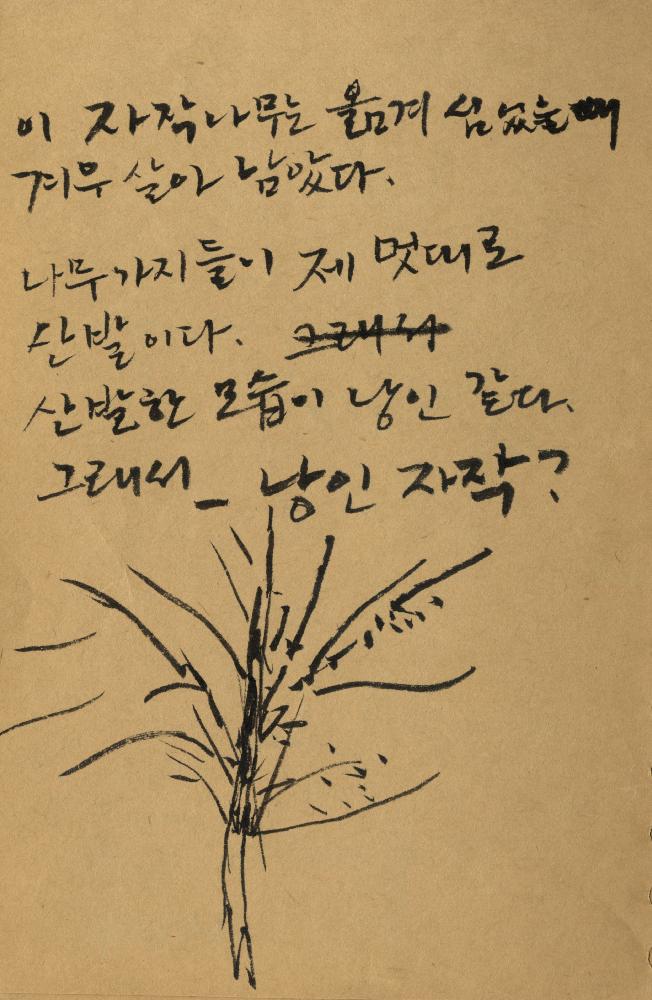 이 자작나무는 옮겨 심었을 때
겨우 살아 남았다.
나무가지들이 제 멋대로
산발이다. 그래서
산발한 모습이 낭인 같다.
그래서 _ 낭인 자작?